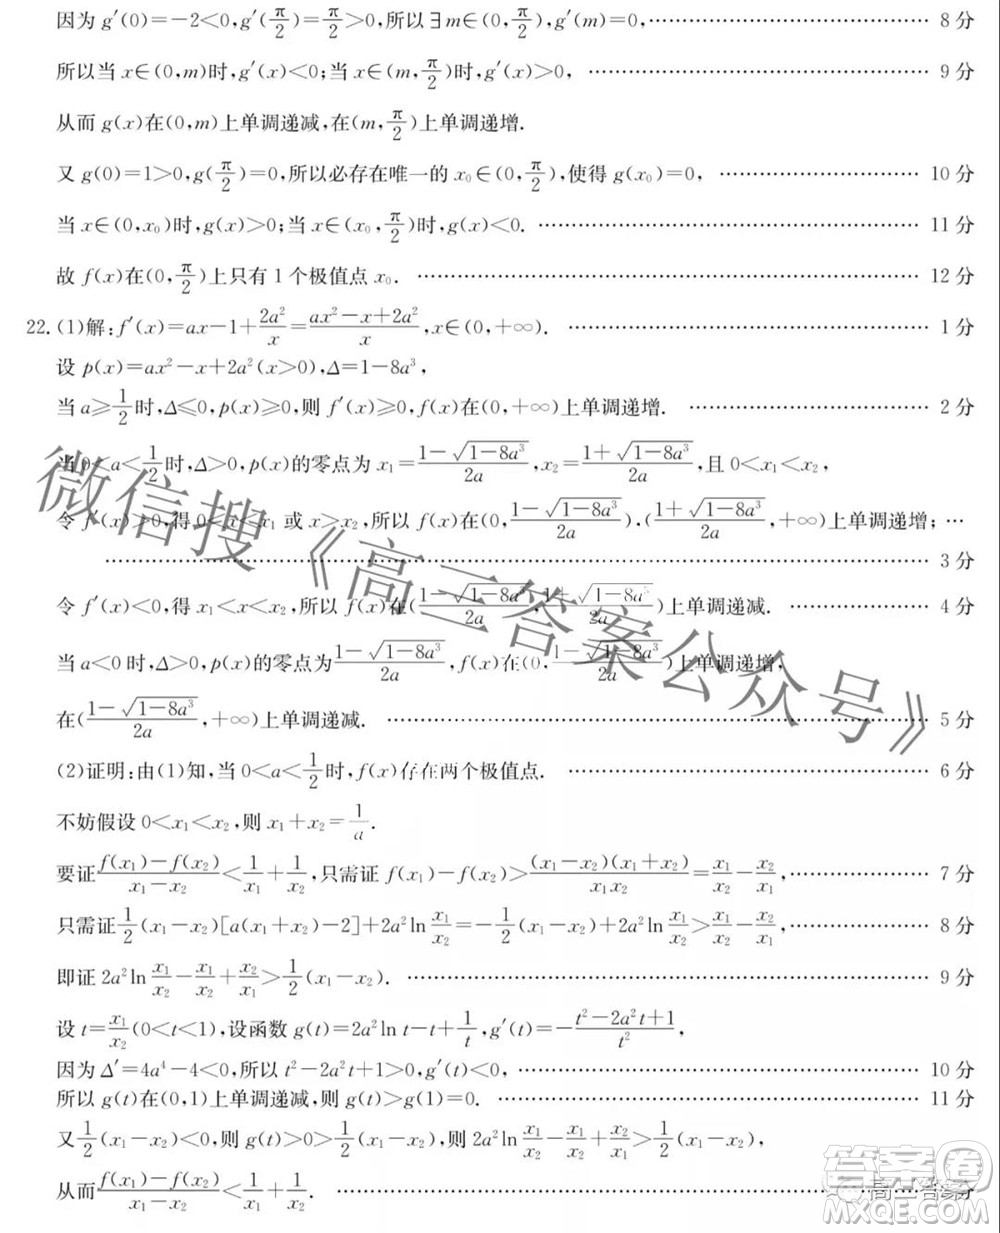 因为 g′(0)=-2<0,g′(π/2)=π/2>0,所以∃m∈(0,π/2),g′(m)=0,…… 8 分
所以当 x∈(0,m)时,g′(x)<0;当 x∈(m,π/2)时,g′(x)>0,…… 9 分
从而 g(x)在(0,m)上单调递减,在(m,π/2)上单调递增.
又 g(0)=1>0,g(π/2)=0,所以必存在唯一的 x₀∈(0,π/2),使得 g(x₀)=0,…… 10 分
当 x∈(0,x₀)时,g(x)>0;当 x∈(x₀,π/2)时,g(x)<0.…… 11 分
故 f(x)在(0,π/2)上只有 1 个极值点 x₀.…… 12 分
22.(1)解:f′(x)=ax-1+2a²/x=(ax²-x+2a²)/x,x∈(0,+∞).…… 1 分
设 p(x)=ax²-x+2a²(x>0),Δ=1-8a³,
当 a≥1/2时,Δ≤0,p(x)≥0,则 f′(x)≥0,f(x)在(0,+∞)上单调递增.…… 2 分
当 0<a<1/2时,Δ>0,p(x)的零点为 x₁=(1-√(1-8a³))/2a,x₂=(1+√(1-8a³))/2a,且 0<x₁<x₂,
令 f′(x)>0,得 0<x<x₁ 或 x>x₂,所以 f(x)在(0,(1-√(1-8a³))/2a),((1+√(1-8a³))/2a,+∞)上单调递增;…
…… 3 分
令 f′(x)<0,得 x₁<x<x₂,所以 f(x)在((1-√(1-8a³))/2a,(1+√(1-8a³))/2a)上单调递减.…… 4 分
当 a<0 时,Δ>0,p(x)的零点为(1-√(1-8a³))/2a,f(x)在(0,(1-√(1-8a³))/2a)上单调递增,
在((1-√(1-8a³))/2a,+∞)上单调递减.…… 5 分
(2)证明:由(1)知,当 0<a<1/2时,f(x)存在两个极值点.…… 6 分
不妨假设 0<x₁<x₂,则 x₁+x₂=1/a.
要证(f(x₁)-f(x₂))/(x₁-x₂)<1/x₁+1/x₂,只需证 f(x₁)-f(x₂)>(x₁-x₂)(x₁+x₂)/x₁x₂=x₁/x₂-x₂/x₁,…… 7 分
只需证1/2(x₁-x₂)[a(x₁+x₂)-2]+2a²ln x₁/x₂=-1/2(x₁-x₂)+2a²ln x₁/x₂>x₁/x₂-x₂/x₁,…… 8 分
即证 2a²ln x₁/x₂-x₁/x₂+x₂/x₁>1/2(x₁-x₂).…… 9 分
设 t=x₁/x₂(0<t<1),设函数 g(t)=2a²ln t-t+1/t,g′(t)=-(t²-2a²t+1)/t²,
因为 Δ′=4a⁴-4<0,所以 t²-2a²t+1>0,g′(t)<0,…… 10 分
所以 g(t)在(0,1)上单调递减,则 g(t)>g(1)=0.…… 11 分
又1/2(x₁-x₂)<0,则 g(t)>0>1/2(x₁-x₂),则 2a²ln x₁/x₂-x₁/x₂+x₂/x₁>1/2(x₁-x₂),
从而(f(x₁)-f(x₂))/(x₁-x₂)<1/x₁+1/x₂.…… 分
微信搜《高三答案公众号》
答案圈
高三答案
MXQE.COM